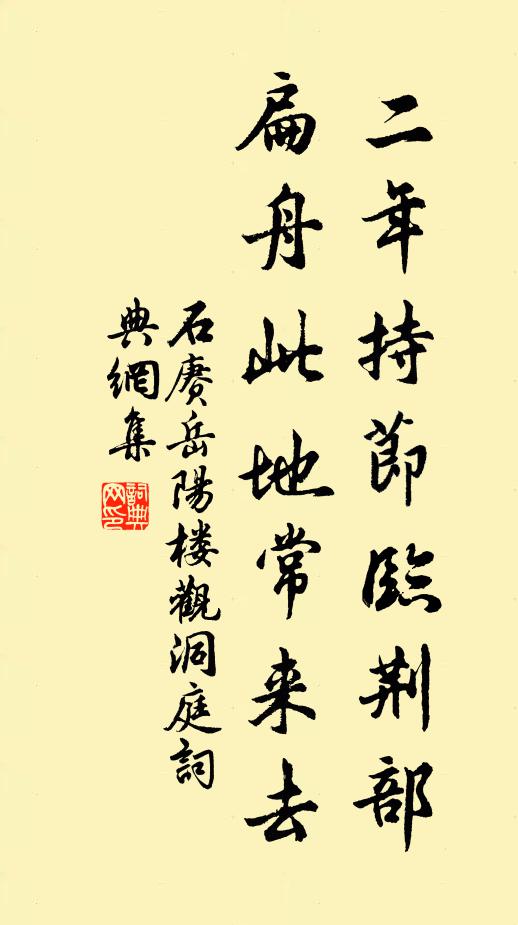 二年持節臨荆部
扁舟此地常来去
石赓岳陽楼觀洞庭詞
典網集
詞典网印